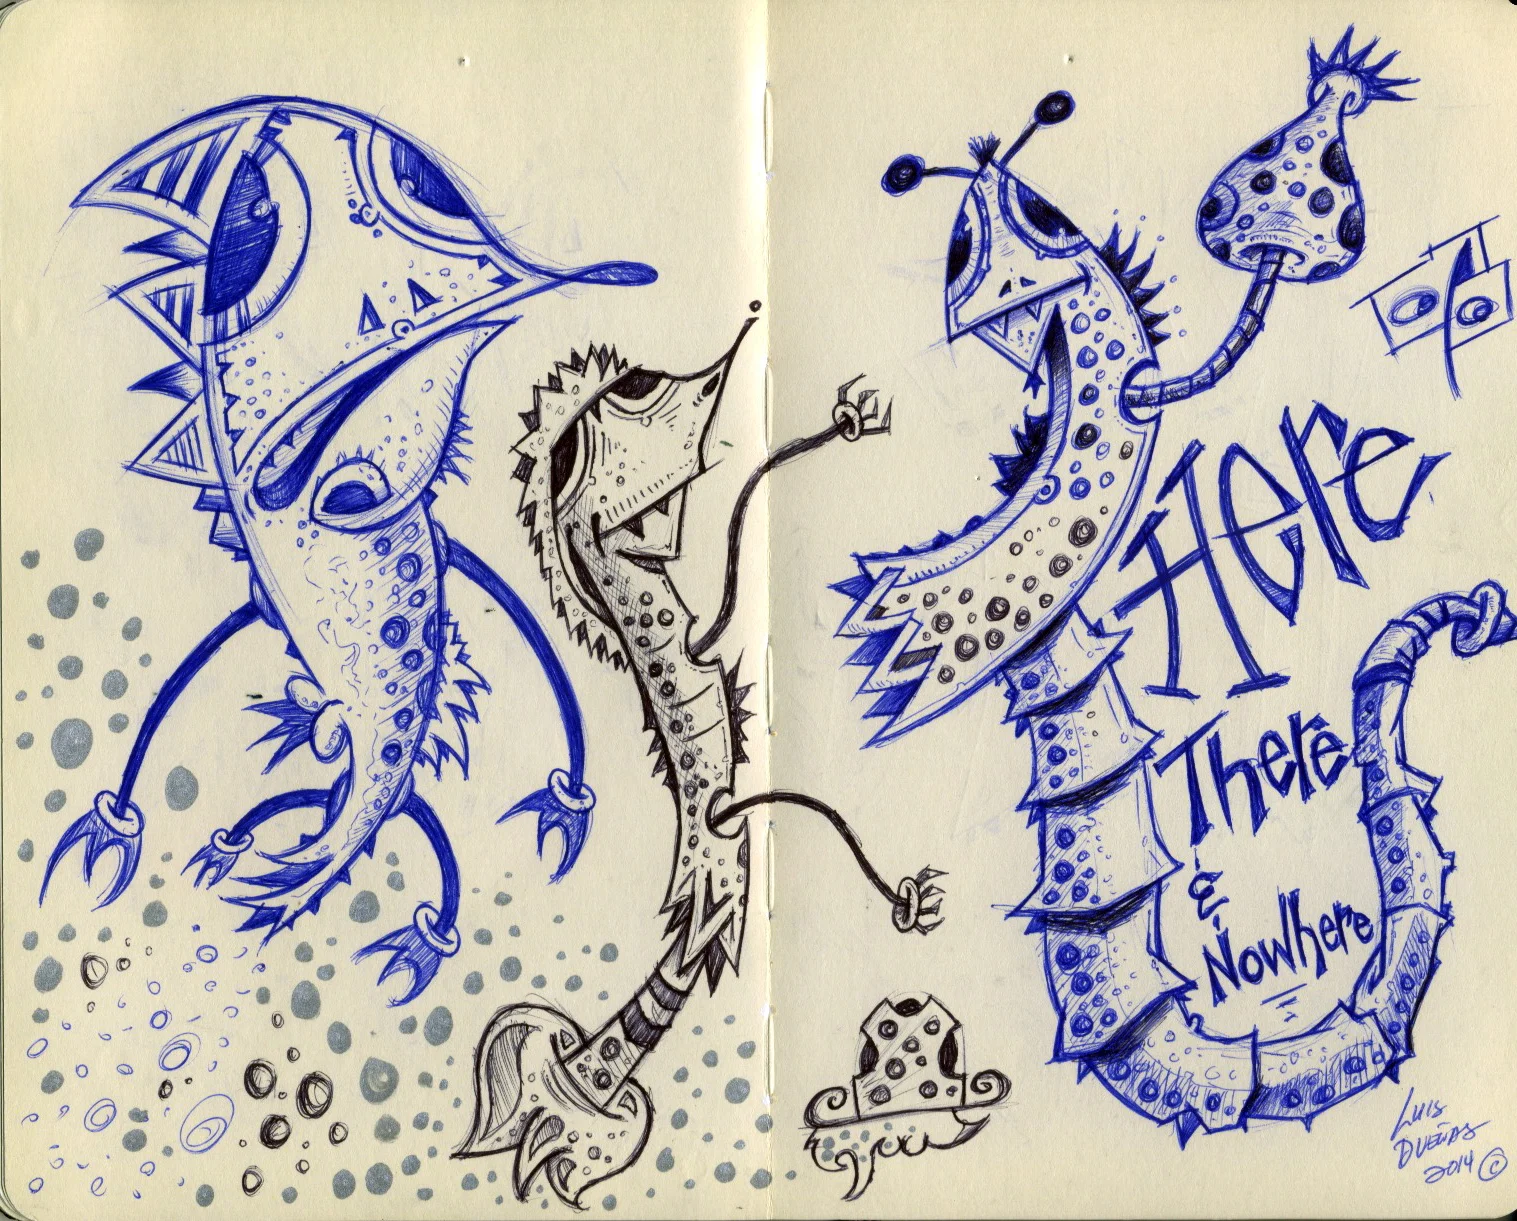 Here
There
&
Nowhere
Luis
Dueñas
2014 ©